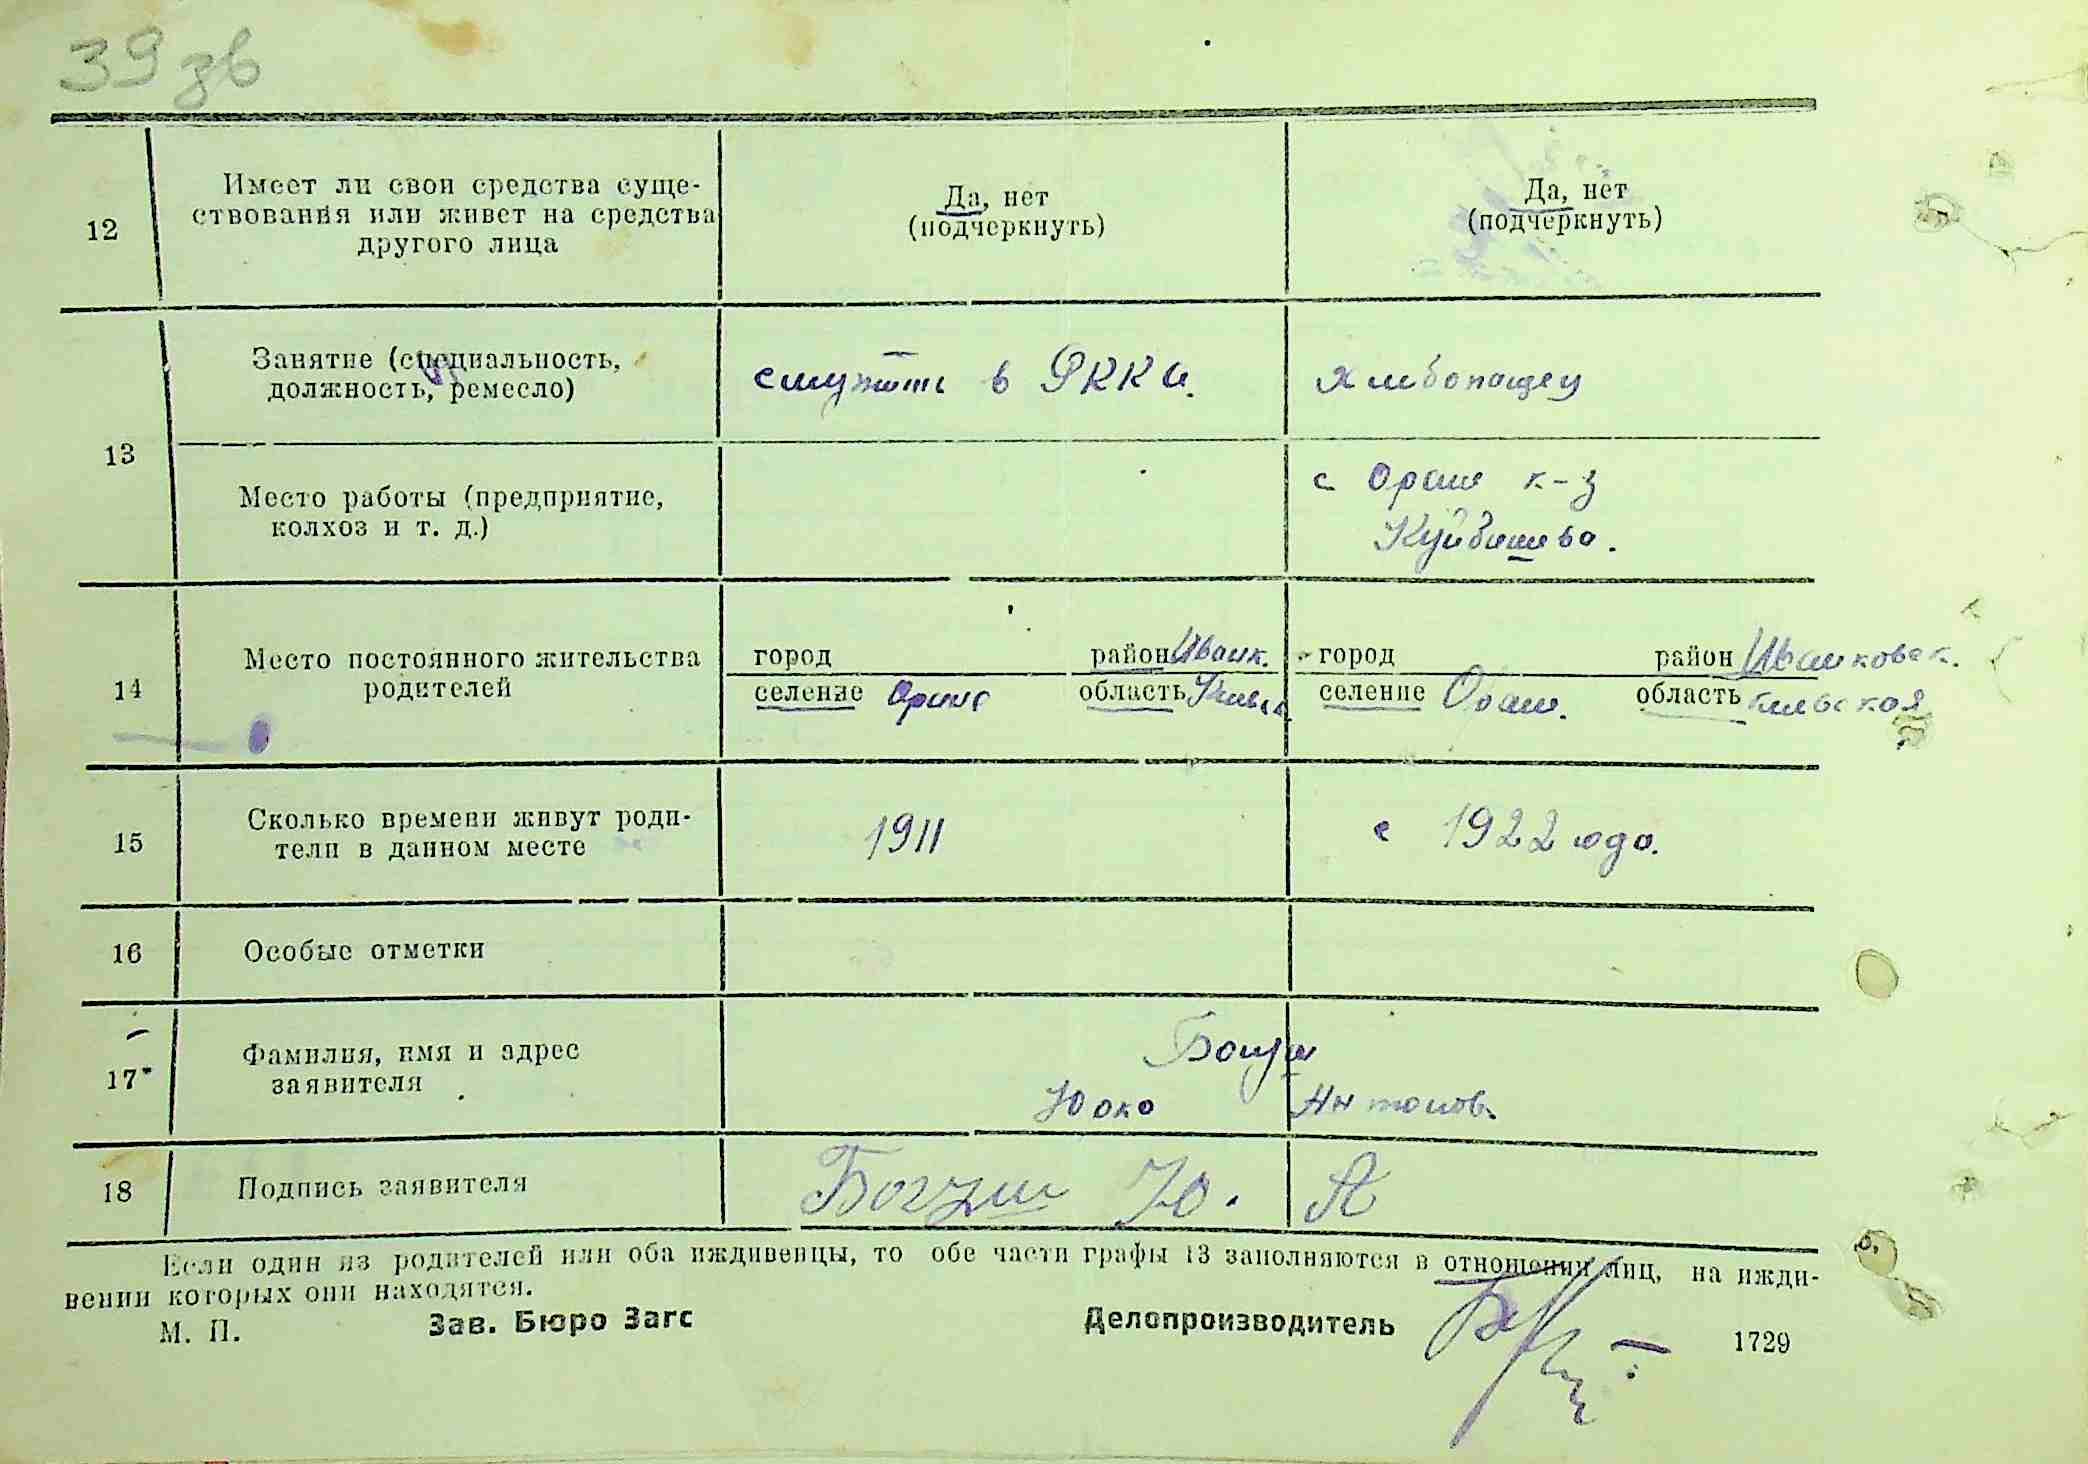 39 зв
12
Имеет ли свои средства суще-
ствования или живет на средства
другого лица
Да, нет
(подчеркнуть)
Да, нет
(подчеркнуть)
13
Занятие (специальность,
должность, ремесло)
в РККА.
хлибопащец
Место работы (предприятие,
колхоз и т. д.)
с Оране к-з
Куйбишева.
14
Место постоянного жительства
родителей
город район Иванк.
селение Оране область Киевск
город район Иванковск.
селение Оране. область Киевская
15
Сколько времени живут роди-
тели в данном месте
1911
с 1922 года.
16
Особые отметки
17
Фамилия, имя и адрес
заявителя
Богуш
Антонов.
18
Подпись заявителя
Богуш Ю. А
Если один из родителей или оба иждивенцы, то обе части графы 13 заполняются в отношении лиц, на ижди-
вении которых они находятся.
М. П.
Зав. Бюро Загс
Делопроизводитель
1729